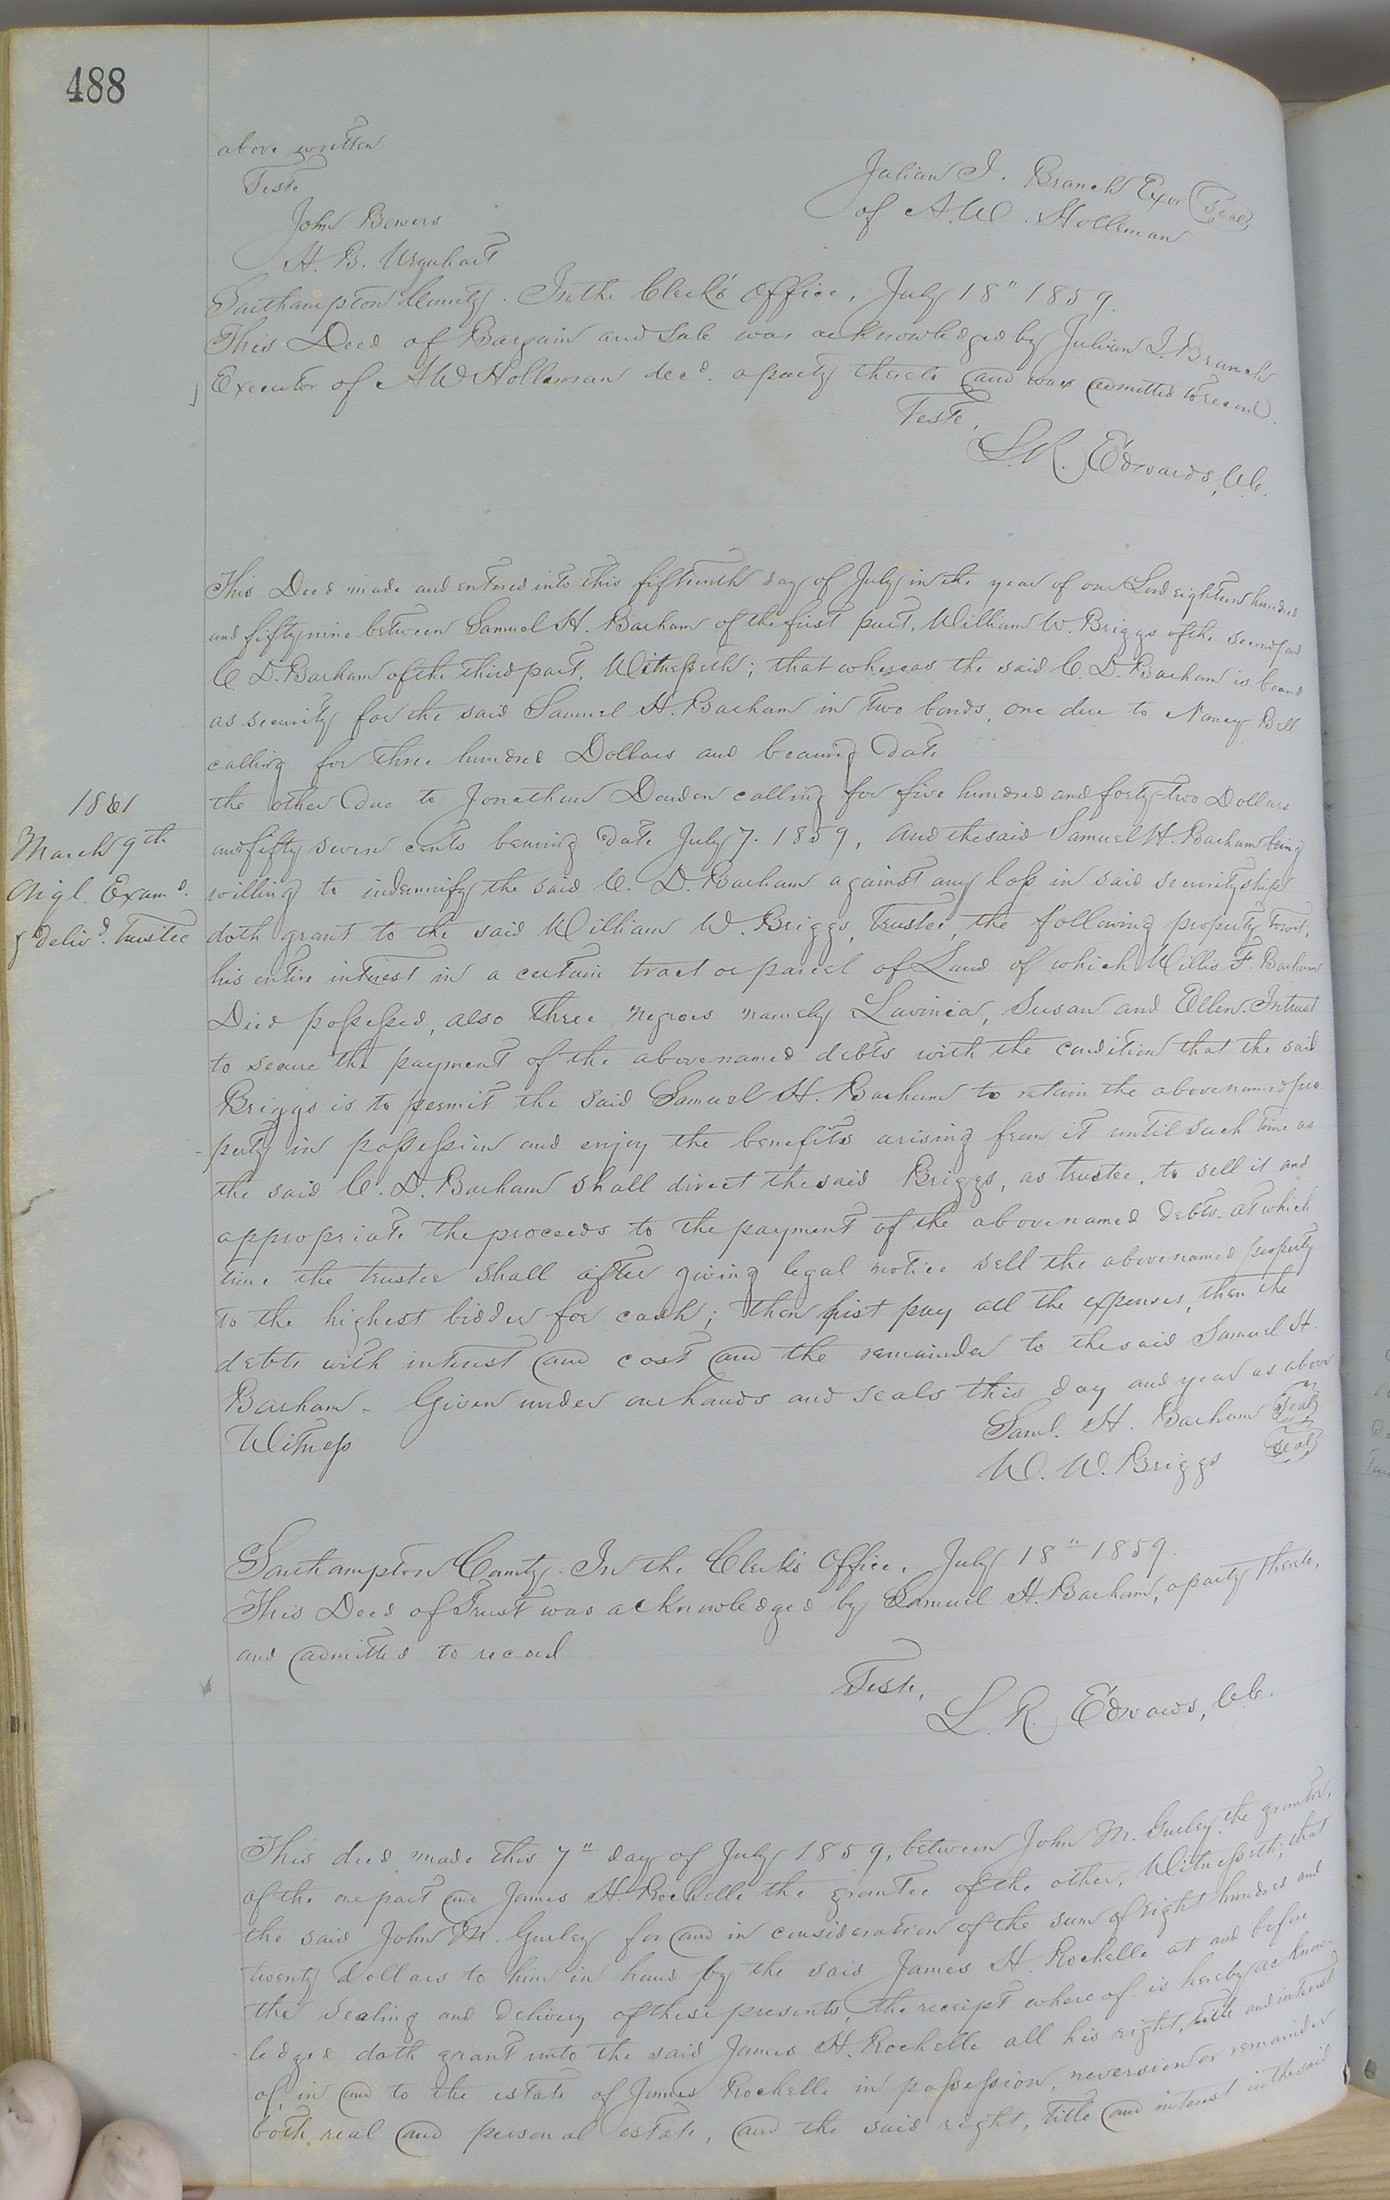 488
above written
Teste
John Bowers
H. B. Urquhart
Julian J. Branch Exor Seal
of A. W. Holleman
Southampton County. In the Clerk's Office, July 18" 1859.
This Deed of Bargain and Sale was acknowledged by Julian J. Branch
Executor of A W Holleman decd. a party thereto and was admitted to record.
Teste,
L. R. Edwards, C.C.
This Deed made and entered into this fifteenth day of July in the year of our Lord eighteen hundred
and fifty nine between Samuel H. Barham of the first part, William W. Briggs of the second and
C D. Barham of the third part, Witnesseth; that whereas the said C. D. Barham is bound
as security for the said Samuel H. Barham in two bonds, one due to Nancy Bell
calling for three hundred Dollars and bearing date
the other due to Jonathan Darden calling for five hundred and forty-two Dollars
and fifty seven cents bearing date July 7. 1859, and the said Samuel H. Barham being
willing to indemnify the said C. D. Barham against any loss in said securityship
doth grant to the said William W. Briggs, trustee, the following property towit,
his entire interest in a certain tract or parcel of Land of which Willis F. Barham
Died possessed, also three negroes namely Lavinia, Susan and Ellen. In trust
to secure the payment of the above named debts with the condition that the said
Briggs is to permit the said Samuel H. Barham to retain the above named pro-
perty in possession and enjoy the benefits arising from it until such time as
the said C. D. Barham shall direct the said Briggs, as trustee, to sell it and
appropriate the proceeds to the payment of the above named debts. at which
time the trustee shall after giving legal notice sell the above named property
to the highest bidder for cash; then first pay all the expenses, then the
debts with interest and cost and the remainder to the said Samuel H.
Barham - Given under our hands and seals this day and year as above
Witness
Saml. H. Barham Seal
W. W. Briggs Seal
1861
March 9th
Origl. Examd.
& delivd. Trustee
Southampton County. In the Clerk's Office, July 18" 1859.
This Deed of Trust was acknowledged by Samuel H. Barham, a party thereto,
and admitted to record
Teste,
L. R. Edwards, C.C.
This deed made this 7" day of July 1859, between John M. Gurley the grantor,
of the one part and James H. Rochelle the grantee of the other, Witnesseth; that
the said John M. Gurley for and in consideration of the sum of eight hundred and
twenty dollars to him in hand by the said James H. Rochelle at and before
the sealing and delivery of these presents, the receipt where of is hereby acknow-
ledged doth grant unto the said James H. Rochelle all his right, title and interest
of, in and to the estate of James Rochelle in possession, reversion or remainder
both real and personal estate, and the said right, title and interest in the said